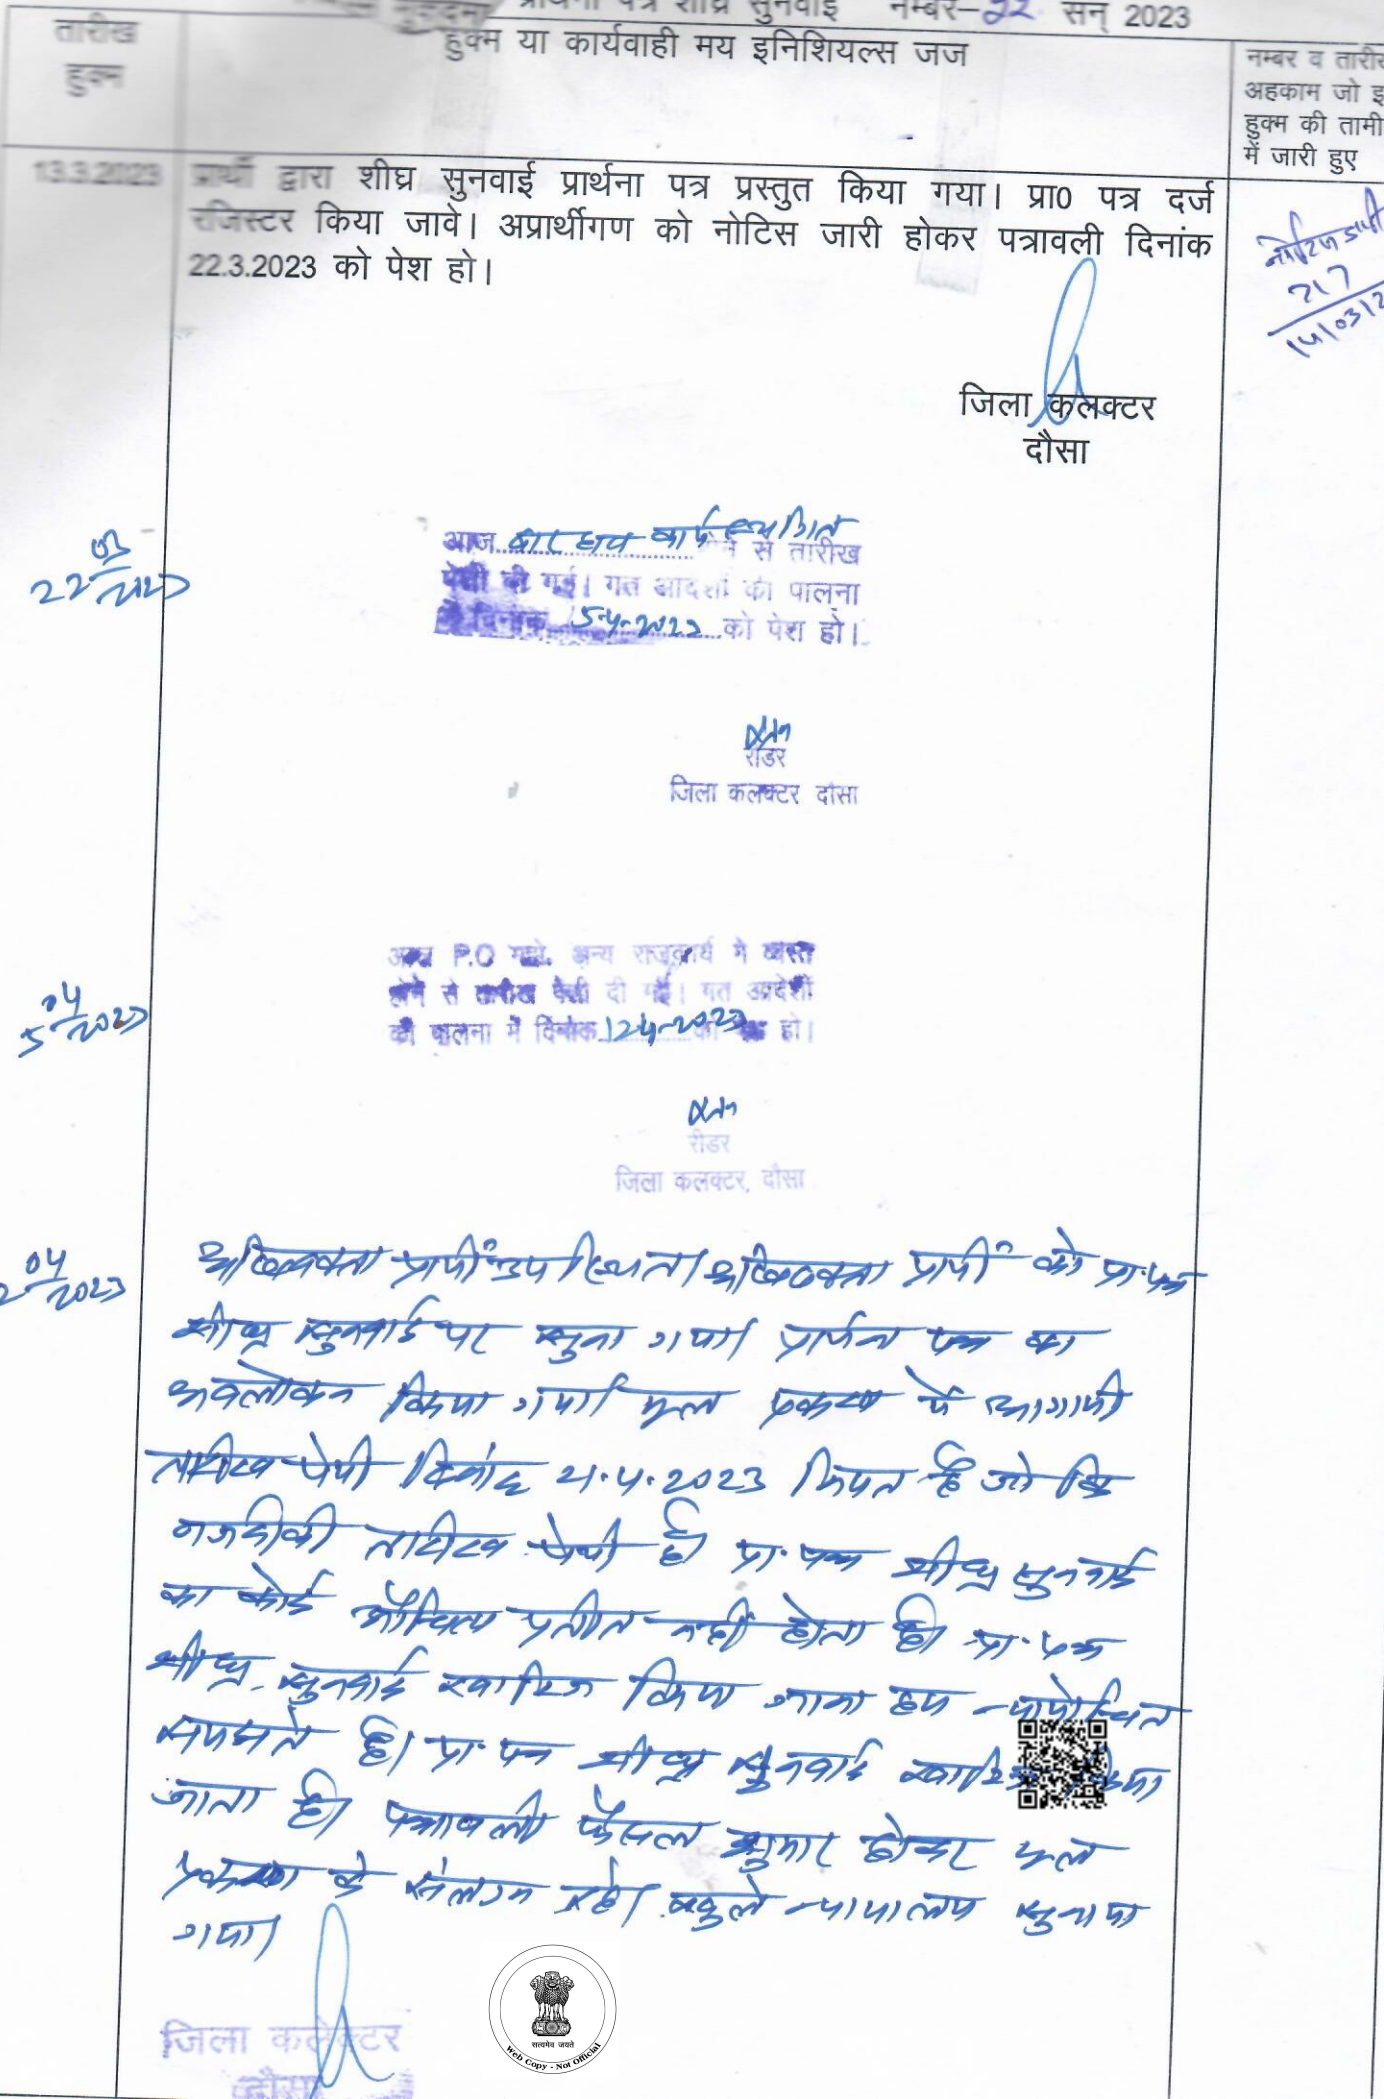 प्रार्थना पत्र शीघ्र सुनवाई नम्बर-22 सन् 2023
तारीख
हुक्म
हुक्म या कार्यवाही मय इनिशियल्स जज
नम्बर व तारीख
अहकाम जो इ
हुक्म की तामी
में जारी हुए
13.3.2023
प्रार्थी द्वारा शीघ्र सुनवाई प्रार्थना पत्र प्रस्तुत किया गया। प्रा0 पत्र दर्ज
रजिस्टर किया जावे। अप्रार्थीगण को नोटिस जारी होकर पत्रावली दिनांक
22.3.2023 को पेश हो।
नोटिस जारी
717
14/03/2
जिला कलक्टर
दौसा
22/03/2023
आज बार संघ कार्य स्थगित होने से तारीख
पेशी दी गई। गत आदेशों की पालना
में दिनांक 5.4.2023 को पेश हो।
रीडर
जिला कलक्टर दौसा
5/04/2023
आज P.O महो. अन्य राजकार्य मे व्यस्त
होने से तारीख पेशी दी गई। गत आदेशों
की पालना में दिनांक 12.4.2023 को पेश हो।
रीडर
जिला कलक्टर, दौसा
2/04/2023
अधिवक्ता प्रार्थी उपस्थित। अधिवक्ता प्रार्थी को प्रा.पत्र
शीघ्र सुनवाई पर सुना गया। प्रार्थना पत्र का
अवलोकन किया गया। मूल प्रकरण में आगामी
तारीख पेशी दिनांक 21.4.2023 नियत है जो कि
नजदीकी तारीख पेशी है। प्रा.पत्र शीघ्र सुनवाई
का कोई औचित्य प्रतीत नहीं होता है। प्रा.पत्र
शीघ्र सुनवाई खारिज किया जाना हम न्यायोचित
समझते है। प्रा.पत्र शीघ्र सुनवाई खारिज किया
जाता है। पत्रावली फैसल शुमार होकर मूल
प्रकरण के संलग्न रहे। खुले न्यायालय सुनाया
गया।
जिला कलेक्टर
दौसा
सत्यमेव जयते
Web Copy - Not Official